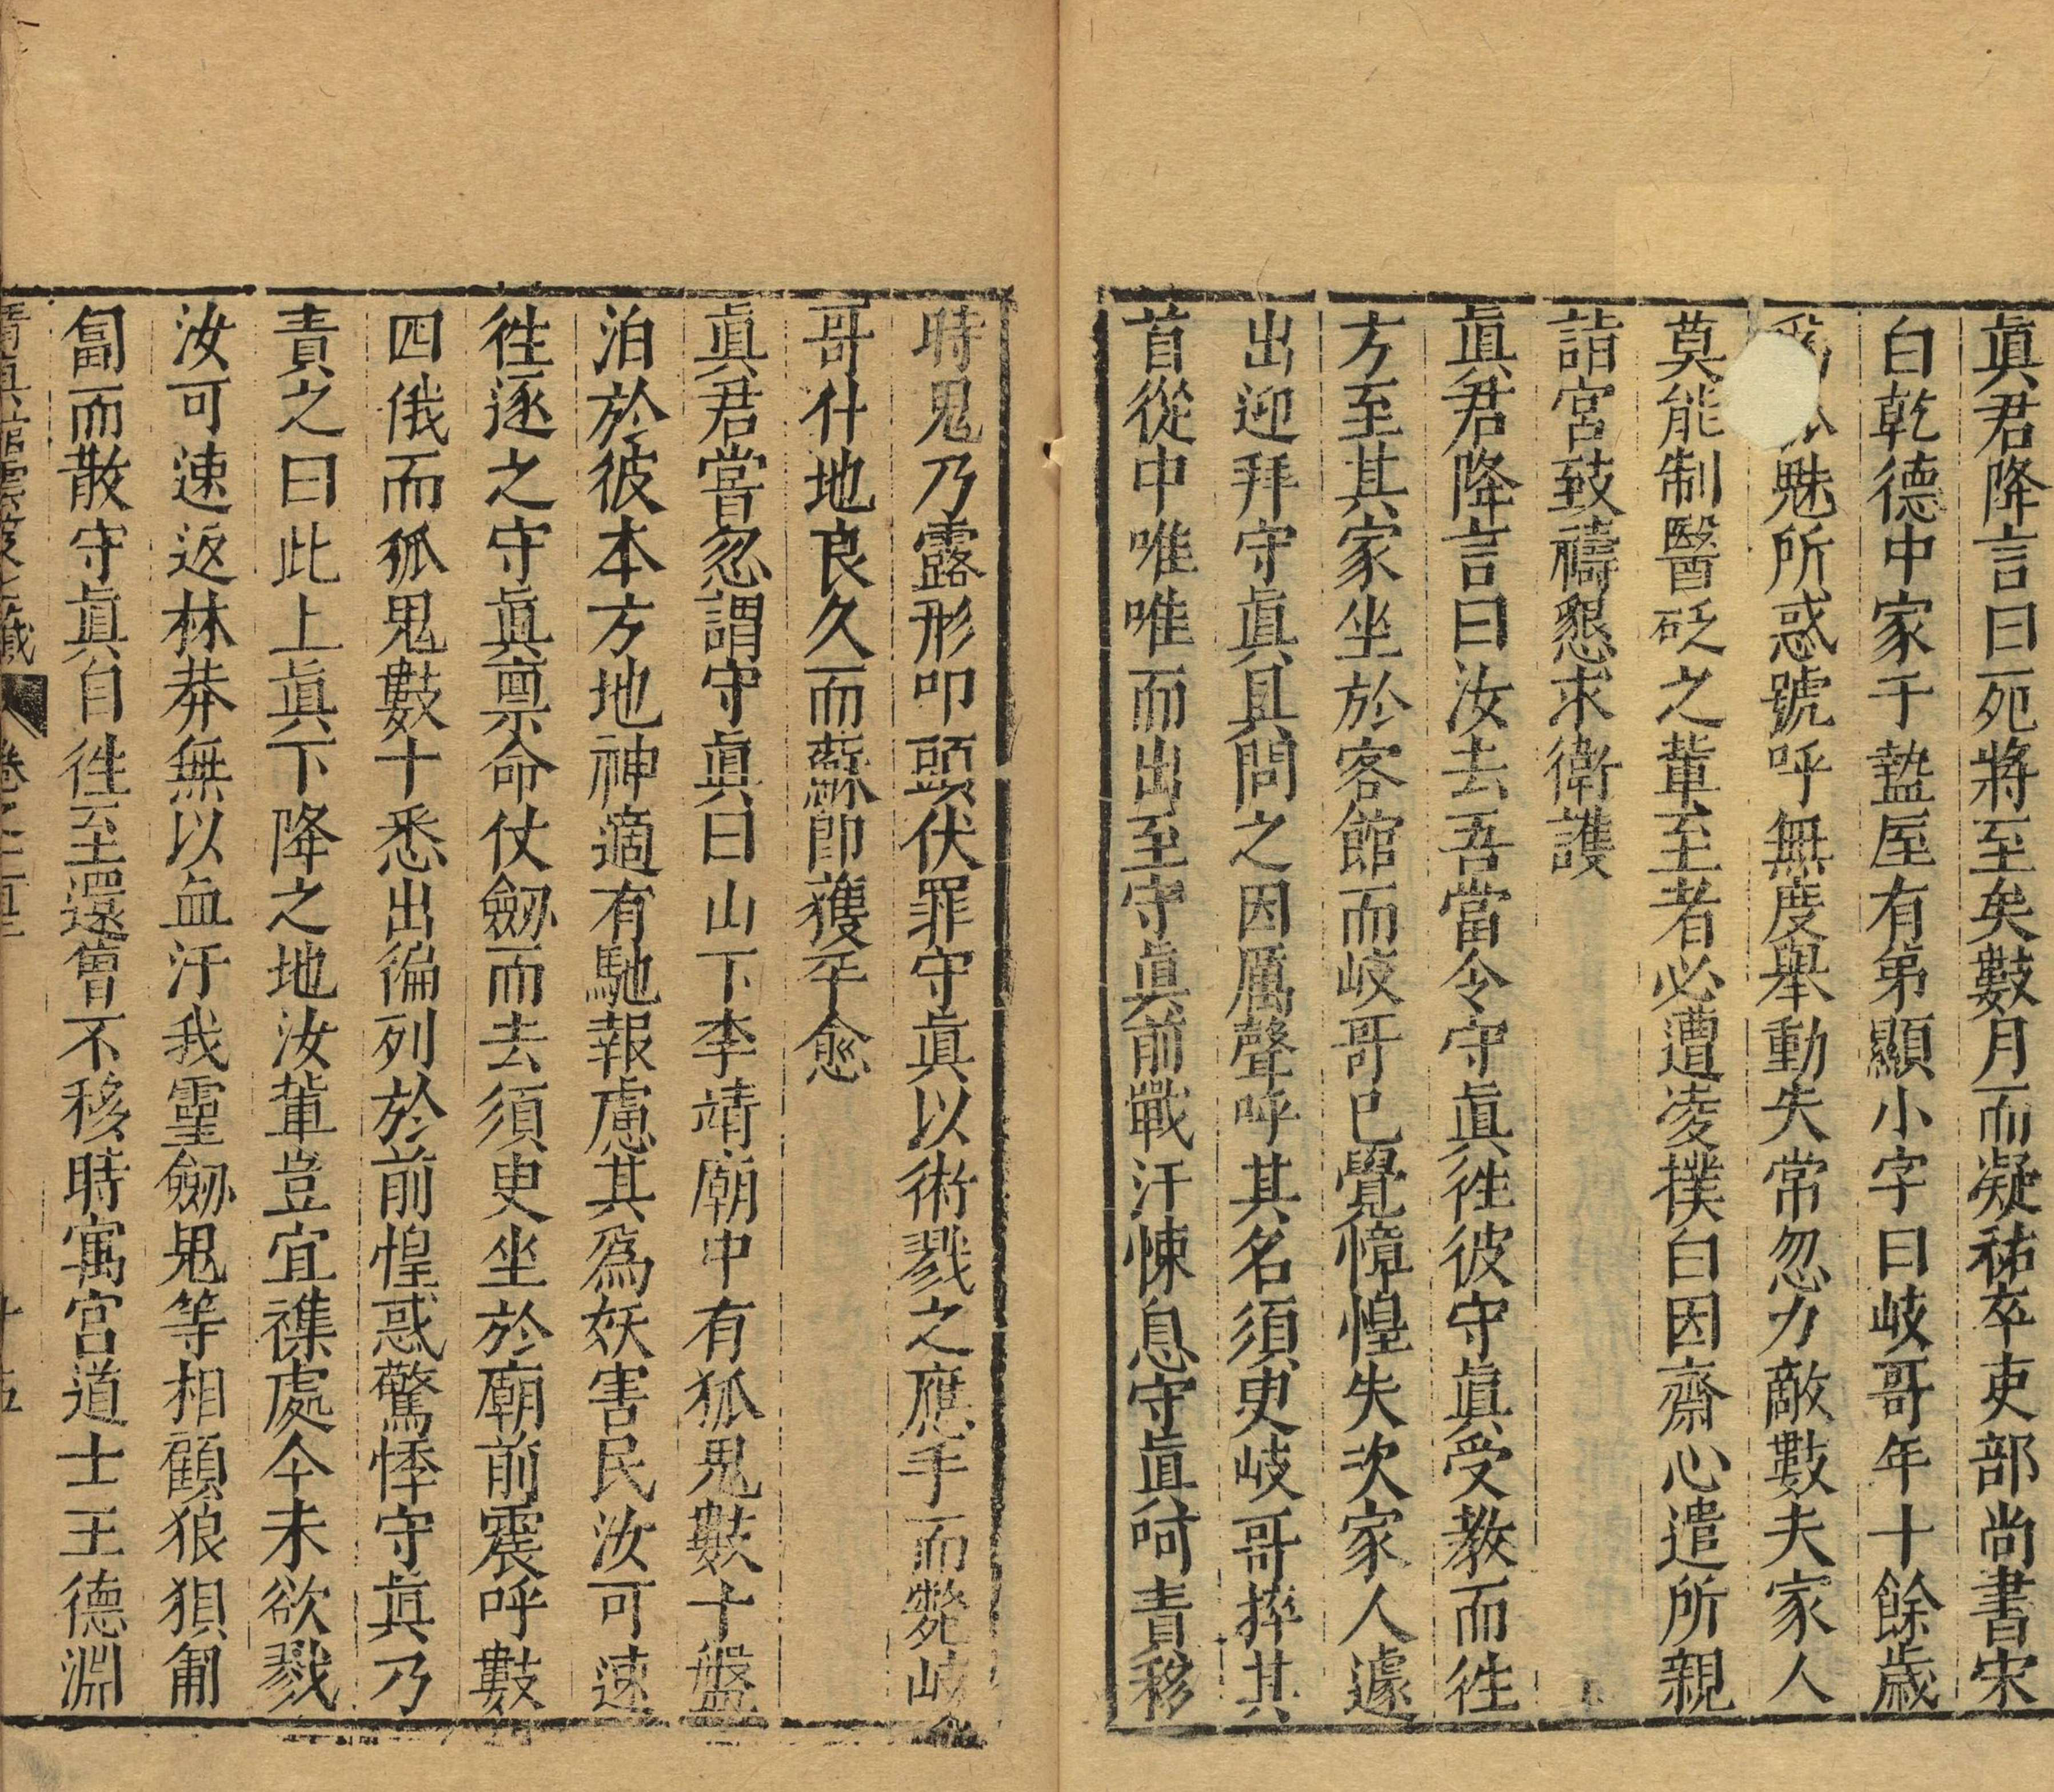 眞君降言曰死將至矣數月而凝祐卒吏部尚書宋
白乾德中家于盩厔有弟顯小字曰岐哥年十餘歲
魅所惑號呼無度舉動失常忽力敵數夫家人
莫能制醫砭之軰至者必遭凌撲白因齋心遣所親
詣宮致禱懇求衛護
眞君降言曰汝去吾當令守眞徃彼守眞受教而徃
方至其家坐於客館而岐哥已覺慞惶失次家人遽
出迎拜守眞具問之因厲聲呼其名須臾岐哥捽其
首從中唯唯而出至守眞前戰汗悚息守眞呵責移
時鬼乃露形叩頭伏罪守眞以術戮之應手而斃岐
哥什地良久而蘇卽獲平愈
眞君嘗忽謂守眞曰山下李靖廟中有狐鬼數十盤
泊於彼本方地神適有馳報慮其爲妖害民汝可速
徃逐之守眞禀命仗劔而去須臾坐於廟前震呼數
四俄而狐鬼數十悉出徧列於前惶惑驚悸守眞乃
責之曰此上眞下降之地汝軰豈宜襍處今未欲戮
汝可速返林莽無以血汙我靈劔鬼等相顧狼狽匍
匐而散守眞自徃至還曾不移時寓宮道士王德淵